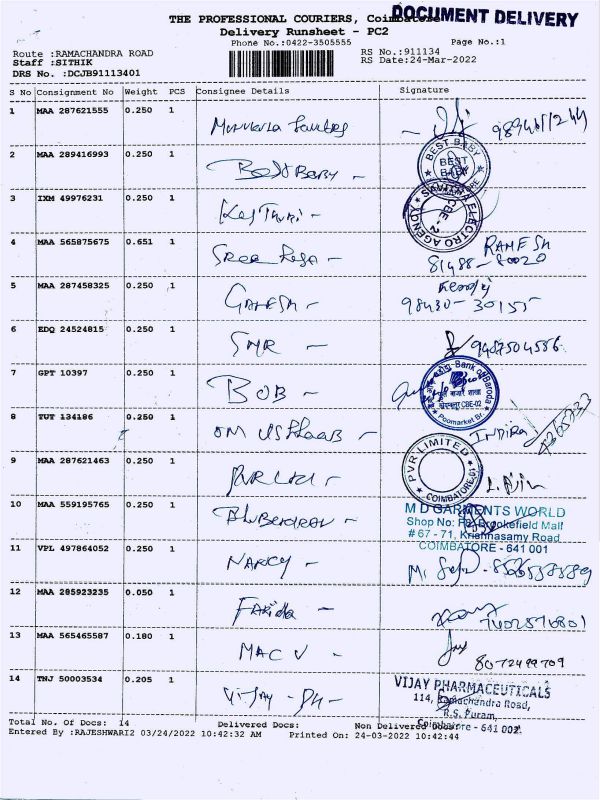 THE PROFESSIONAL COURIERS, Coimbatore
DOCUMENT DELIVERY
Delivery Runsheet - PC2
Phone No.:0422-3505555 Page No.:1
Route :RAMACHANDRA ROAD RS No.:911134
Staff :SITHIK RS Date:24-Mar-2022
DRS No. :DCJB91113401
S No Consignment No Weight PCS Consignee Details Signature
1 MAA 287621555 0.250 1
2 MAA 289416993 0.250 1 Best Baby -
BEST BABY
BEST BABY
3 IXM 49976231 0.250 1 Kasthuri -
SAVITHA ELECTRO AGENCY
CBE - 2
4 MAA 565875675 0.651 1 Sree Roja - RAMESH
81488-80020
5 MAA 287458325 0.250 1 GANESH -
98430-30155
6 EDQ 24524815 0.250 1 SMR - 9487504556
7 GPT 10397 0.250 1 BOB -
Bank of Baroda
कोयम्बत्तूर CBE-02
Poomarket Br.
8 TUT 134186 0.250 1 INDIRA
9 MAA 287621463 0.250 1 PVR Ltd -
PVR LIMITED
COIMBATORE-01
10 MAA 559195765 0.250 1
M D GARMENTS WORLD
Shop No: Brookefield Mall
# 67 - 71, Krishnasamy Road
COIMBATORE - 641 001
11 VPL 497864052 0.250 1 NANCY -
12 MAA 285923235 0.050 1 Farida -
13 MAA 565465587 0.180 1 MAC V -
8072499709
14 TNJ 50003534 0.205 1 Vijay - PH -
VIJAY PHARMACEUTICALS
114, Ramachandra Road,
R.S. Puram,
Coimbatore - 641 002.
Total No. Of Docs: 14 Delivered Docs: Non Delivered Docs:
Entered By :RAJESHWARI2 03/24/2022 10:42:32 AM Printed On: 24-03-2022 10:42:44